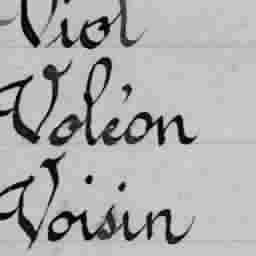 Viol
Voléon
Voisin